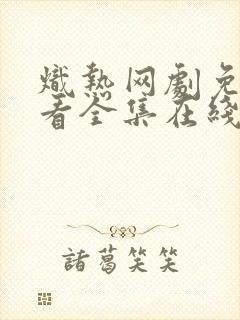 熾熱网劇免
看全集在綫
諸葛笑笑